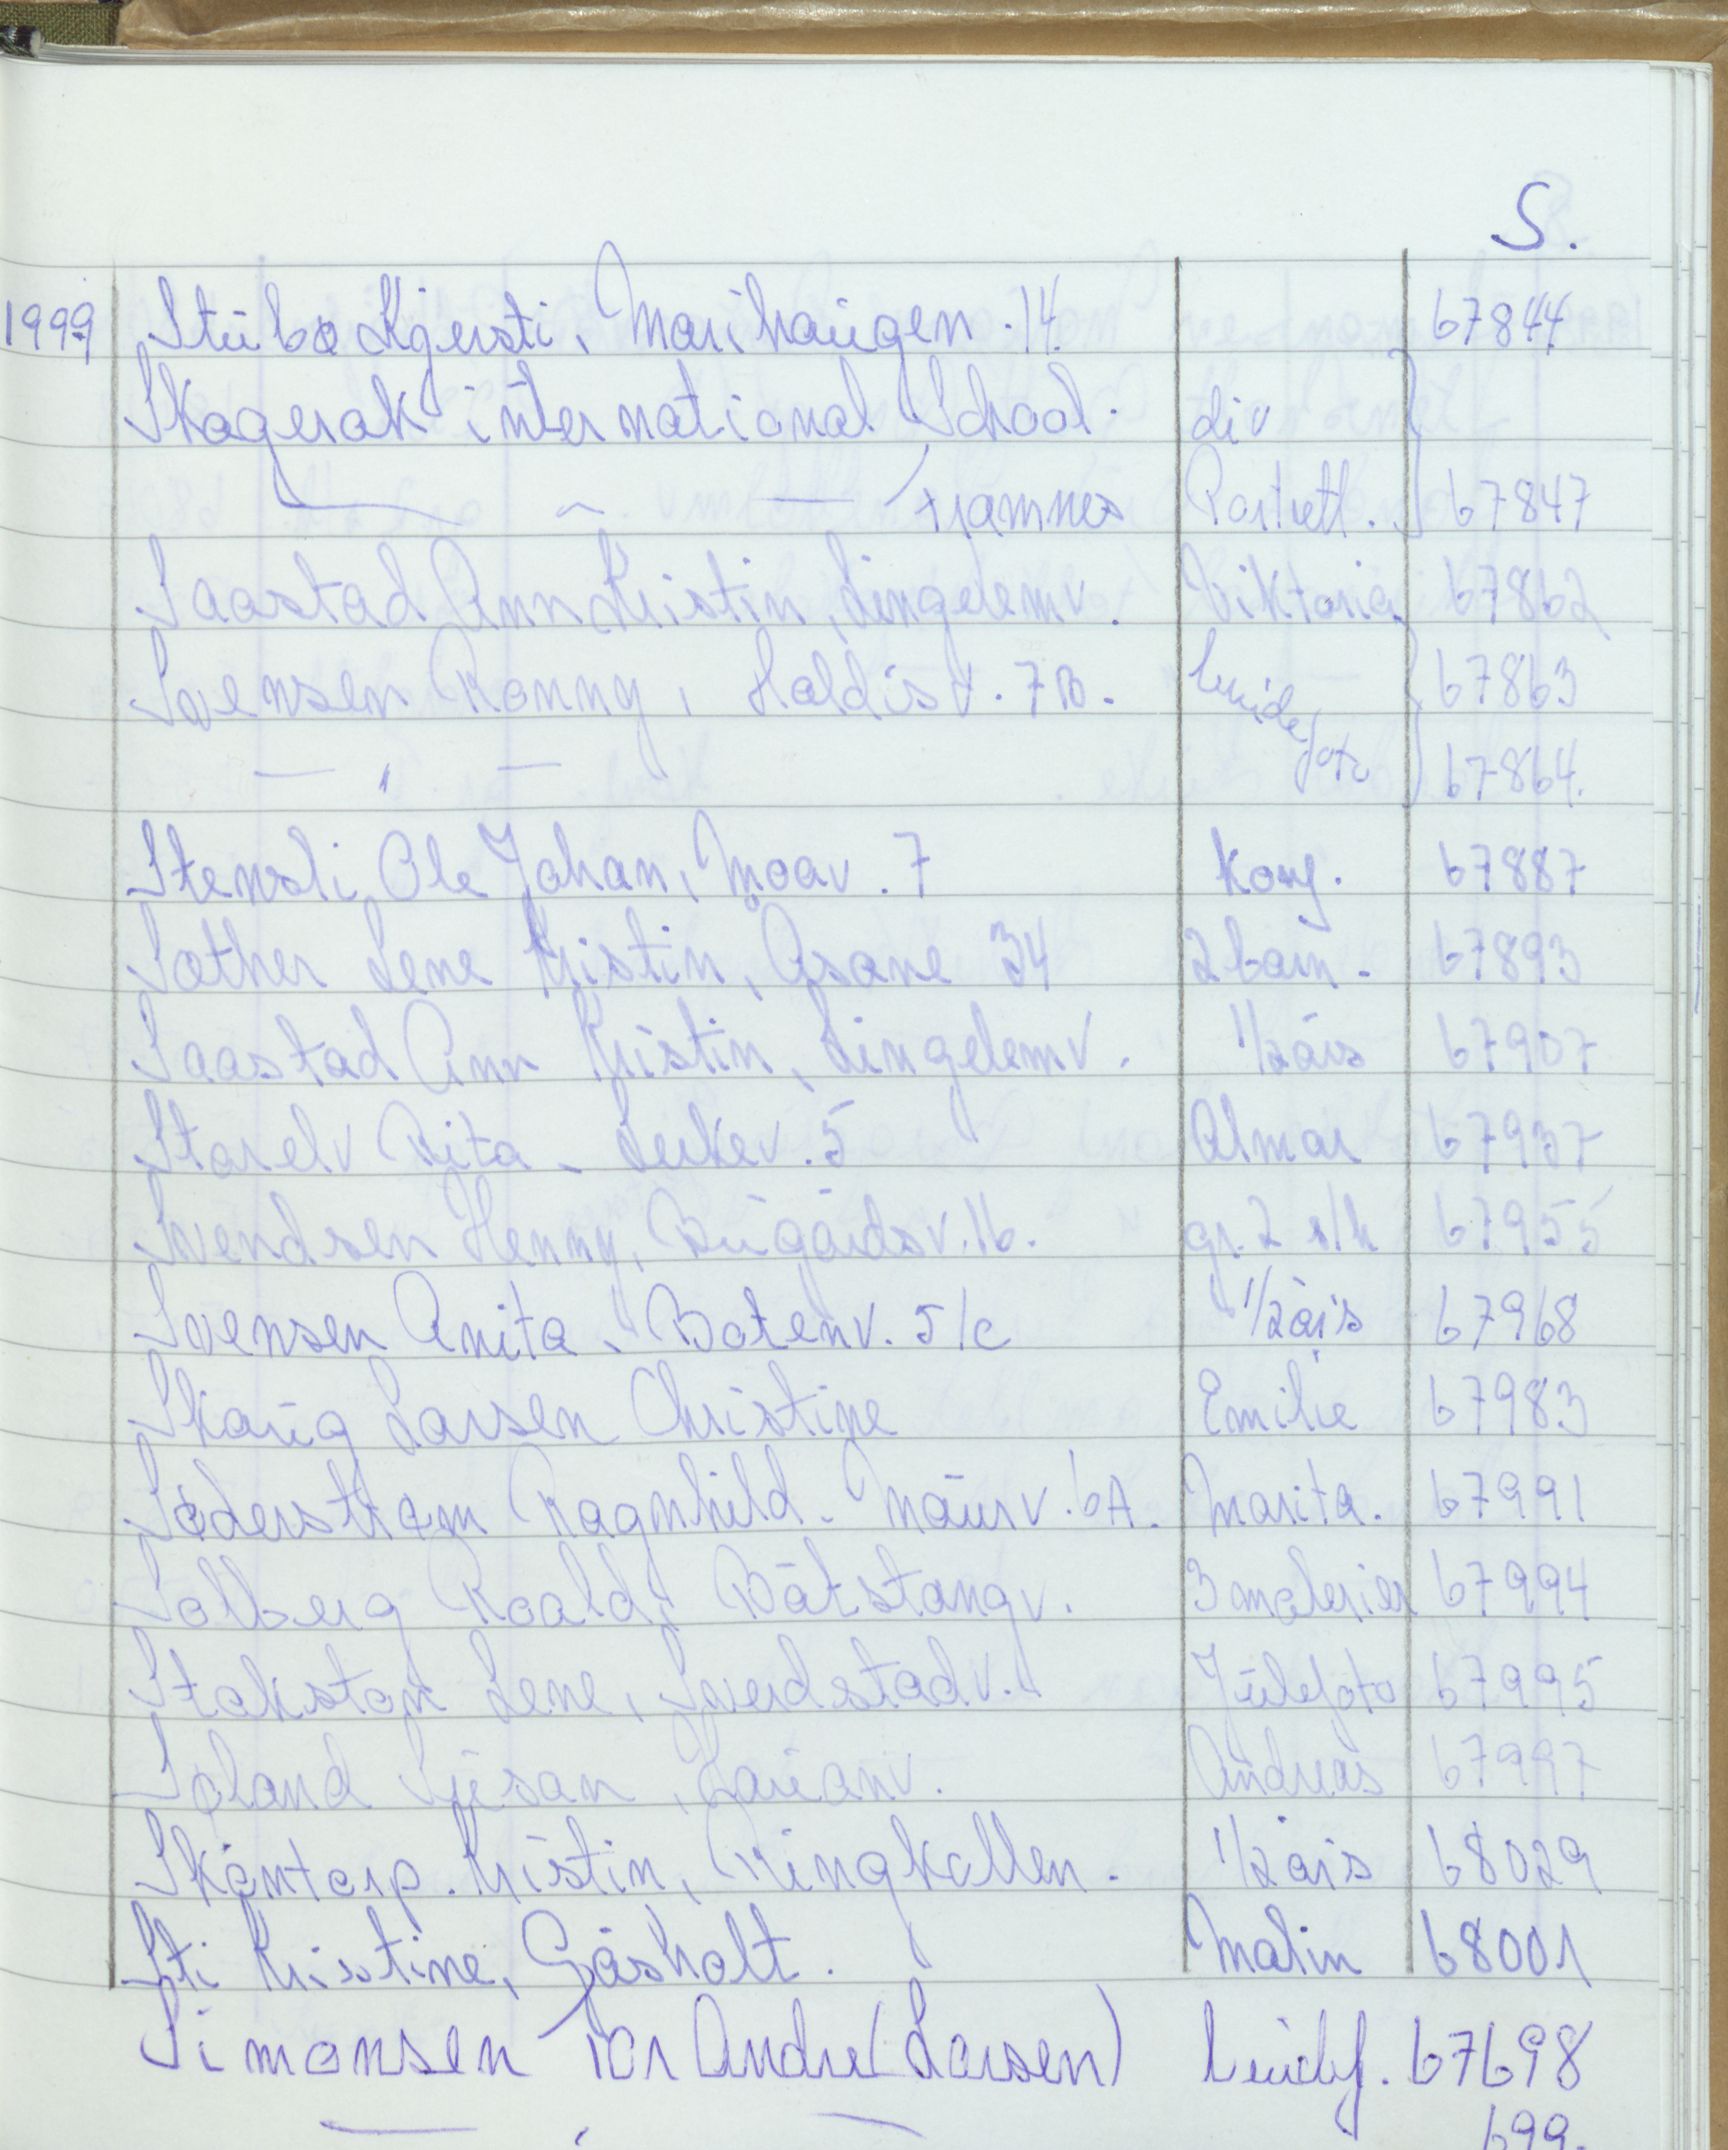 S.
1999 Stubø Kjersti, Marihaugen 14. 67844
Skagerak international School. div
— " — Framnes Portrett. 67847
Saastad Ann Kristin, Lingelemv. Viktoria 67862
Svensen Ronny, Haldisv. 7B. brude 67863
— " — foto 67864.
Stensli Ole Johan, Moav. 7 Konf. 67887
Søther Lene Kristin, Åsane 34 2 barn. 67893
Saastad Ann Kristin, Lingelemv. 1/2 års 67907
Storelv Rita, Lerkev. 5 Almar 67937
Svendsen Henny, Bugårdsv. 16. gr. 2 s/h 67955
Svensen Anita, Botenv. 5/c 1/2 års 67968
Skaug Larsen Christine Emilie 67983
Søderstrøm Ragnhild. Maurv. 6A. Marita. 67991
Solberg Roald, Båtstangv. 3 malerier 67994
Stokstan Lene, Sverdstadv. Julefoto 67995
Søland Susan, Havanv. Andreas 67997
Skontorp. Kristin, Ringkollen. 1/2 års 68029
Sti Kristine, Gåsholt. Malin 68001
Simonsen Tor Andre (Larsen) brudef. 67698
— " — 699.